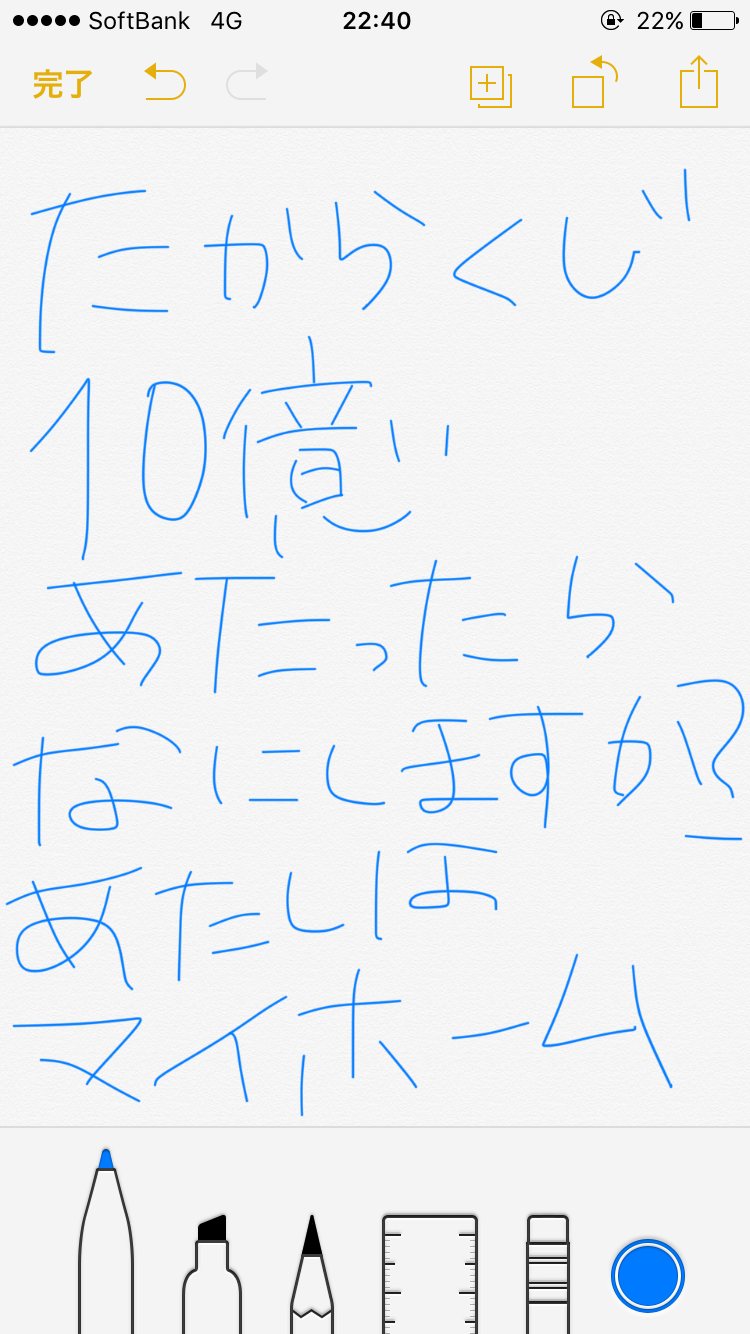 SoftBank 4G 22:40 22%
完了
たからくじ
10億い
あたったら
なにしますか?
あたしは
マイホーム